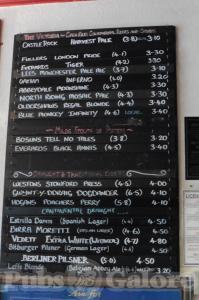 The Victoria - Cask Real Ales and Ciders
Castle Rock Harvest Pale (3.8) 3.10
Fullers London Pride (4.1) 3.30
Everards Tiger (4.2) 3.30
Lees Manchester Pale Ale (3.7) 3.10
Oakham Inferno (4.0) 3.20
Abbeydale Moonshine (4.3) 3.30
North Riding Mosaic Pale (4.3) 3.30
Oldershaws Regal Blonde (4.4) 3.40
Blue Monkey Infinity (4.6) Local 3.40
Bosuns Tell No Tales (3.8) 3.20
Everards Black Annis (4.3) 3.40
Draught & Traditional Ciders
Westons Stowford Press (4.5) 4.00
Gwynt-y-Ddraig Dogdancer (6.5) 4.10
Hogans Poachers Perry (5.8) 4.10
Continental Draught
Estrella Damm (Spanish Lager) (4.6) 4.50
Birra Moretti (Italian Lager) (4.6) 4.50
Vedett Extra White (Wowzer) (4.7) 4.80
Bitburger Pilsner (German Lager) (4.8) 4.40
Berliner Pilsner (5.0) 4.50
Leffe Blonde (Belgian Abbey Ale) 3.20